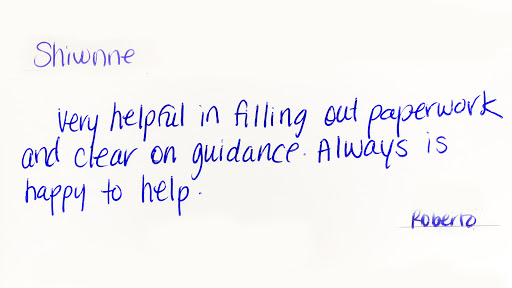 Shiwnne
Very helpful in filling out paperwork
and clear on guidance. Always is
happy to help.
Roberto